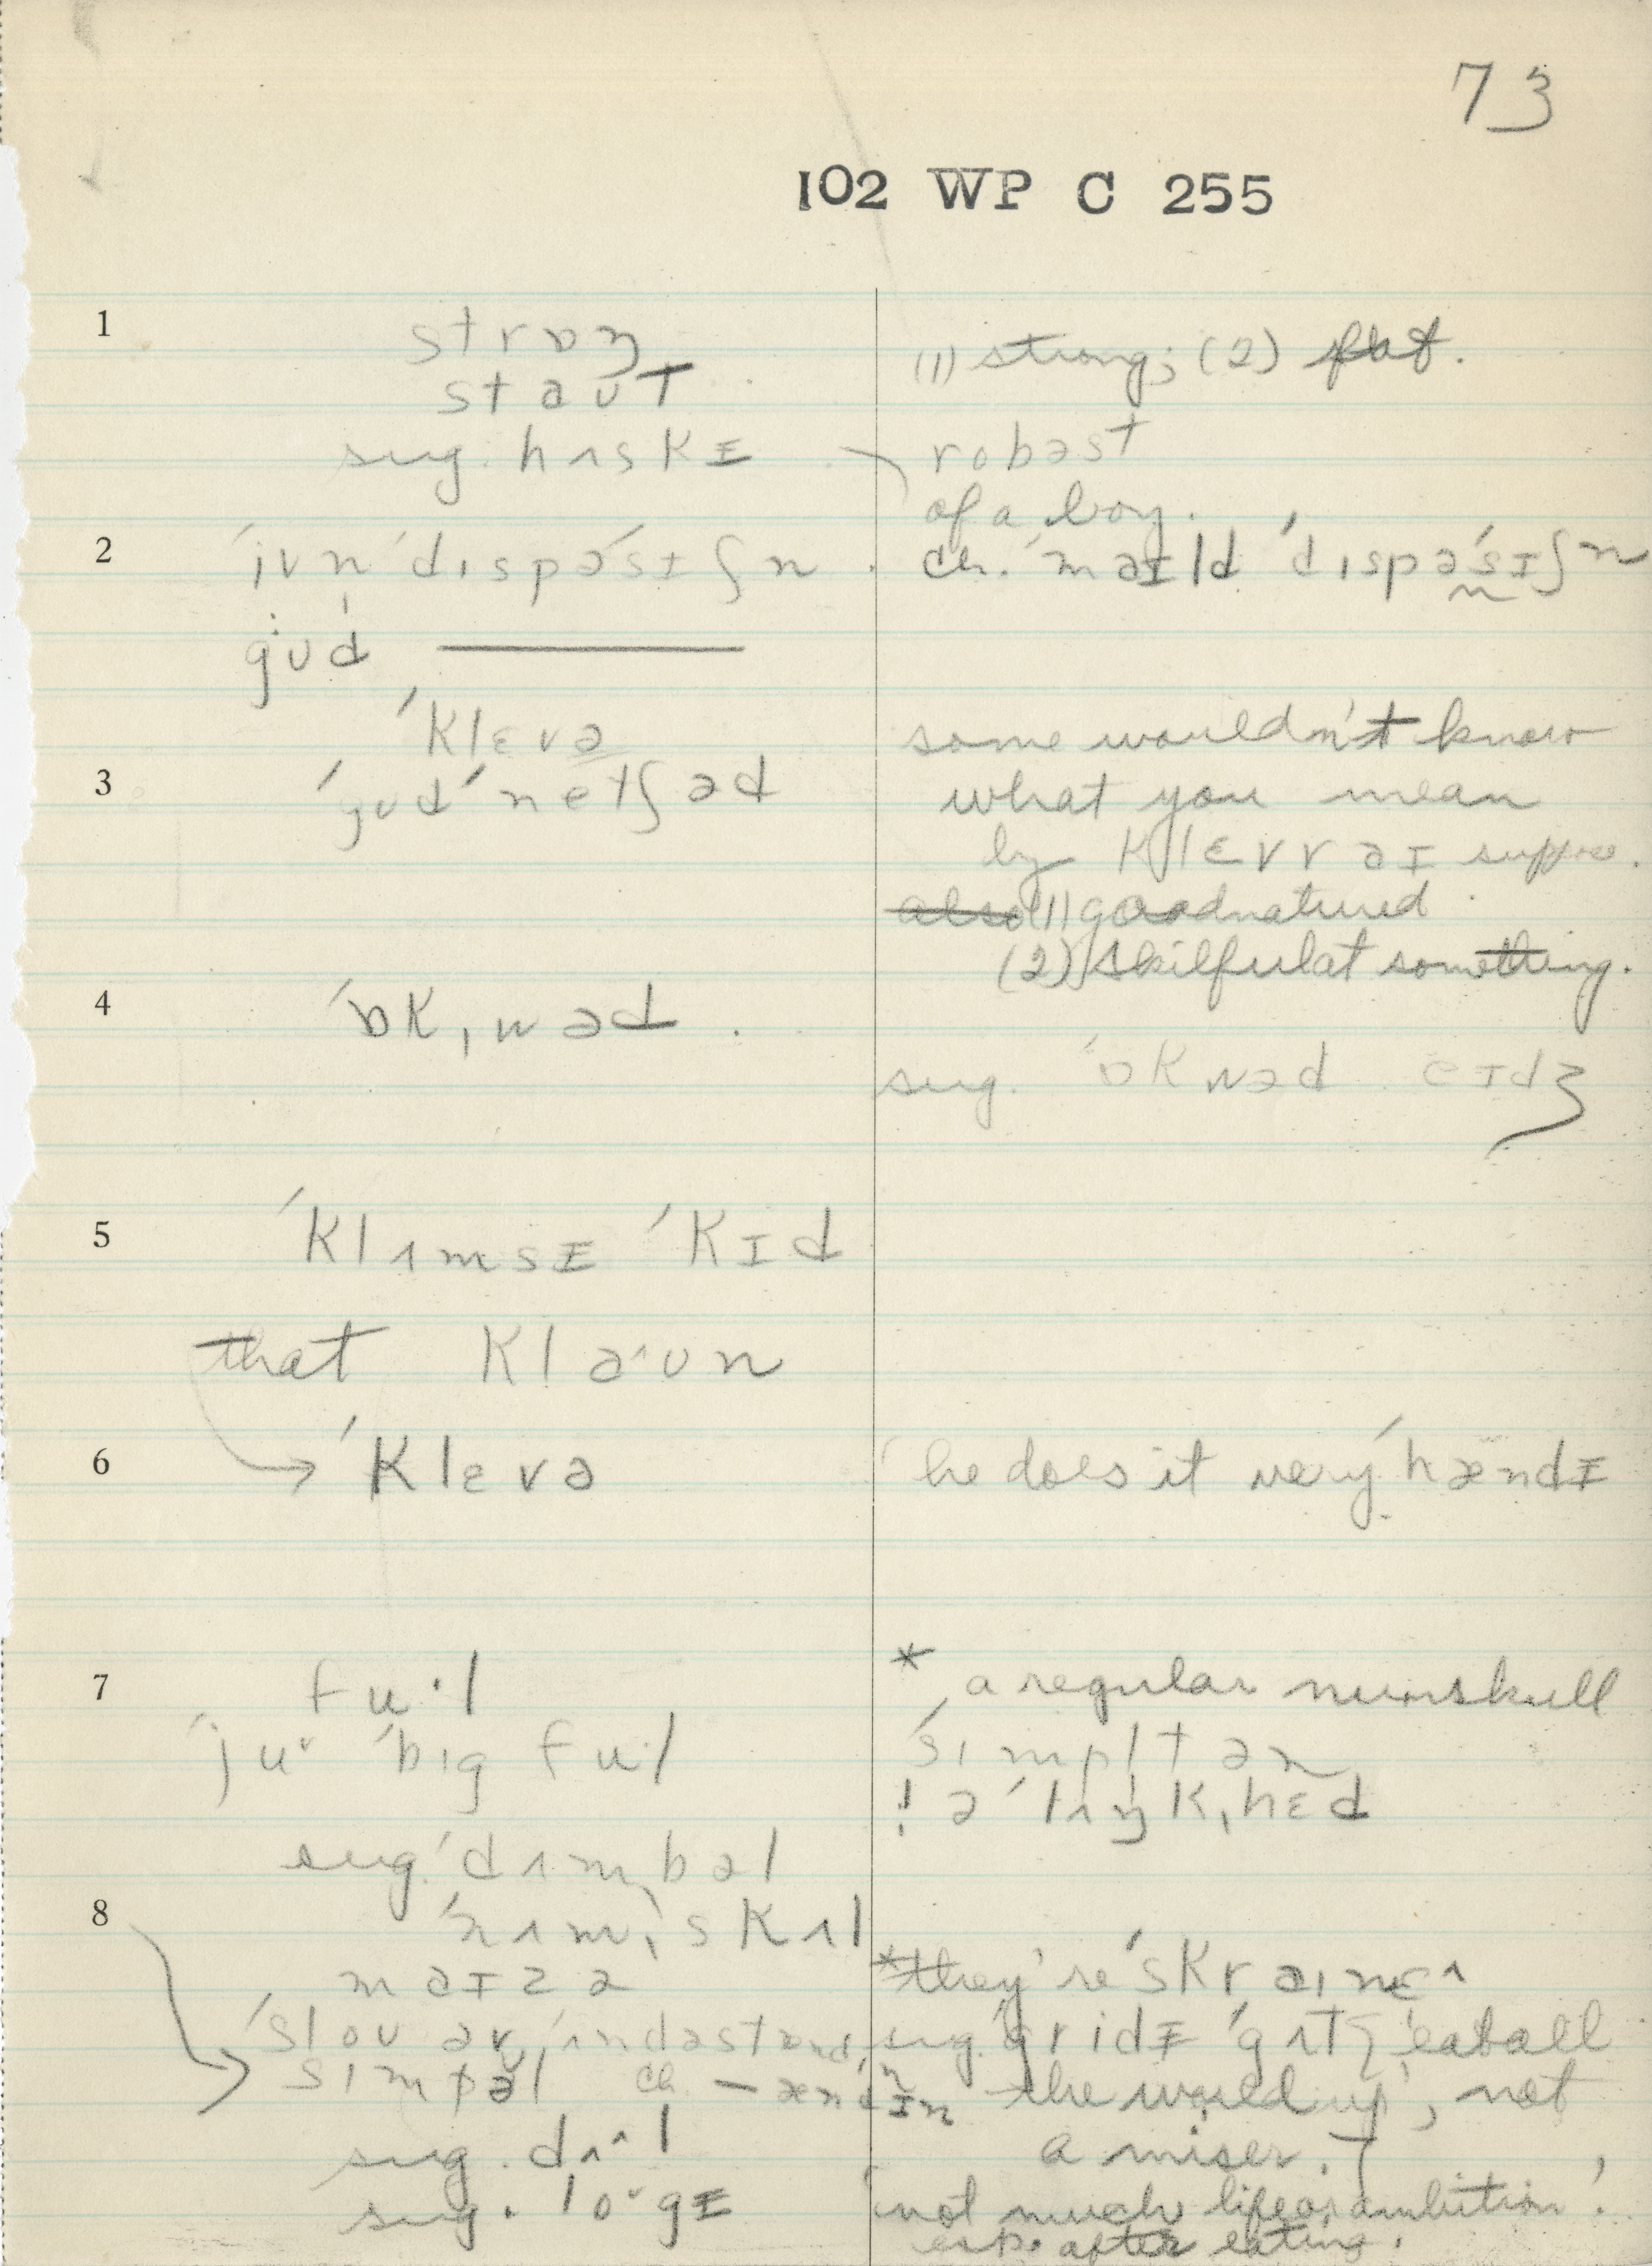 73
102 WP C 255
1
strɒŋ
(1) strong; (2) fat.
staʊt
sug. hʌskɪ
robəst
of a boy.
2
ˈjʊn ˈdɪspəˈsɪʃn .
ch. ˈmaɪld ˈdɪspəˈsɪʃn
gʊd ———
ˈklɛvə
some wouldn't know
3
ˈgʊd ˈnetʃəd
what you mean
by klɛvr aɪ suppose.
also (1) goodnatured
(2) skilful at something.
4
ˈɒkˌwəd .
sug. ˈɒkwəd eɪdʒ
5
ˈklʌmsɪ ˈkɪd
that klaˑʊn
6
ˈklɛvə
he does it very ˈhændɪ
7
fuˑl
* a regular numskull
ˈjuˑ ˈbɪg fuˑl
ˈsɪmpltən
! ə ˈlʌŋkˌhɛd
sug. ˈdʌmbəl
8
ˈnʌmˌskʌl
maɪzə
*they're ˈskraɪnɛ^
ˈsloʊ əv ˌʌndəstænd
sug. ˈgridɪ ˈgʌts 'eat all
sɪmpəl ch. — ændɪn
the world up', not
a miser.
sug. dʌˑl
sug. loˑgɪ
'not much life or ambition'.
esp. after eating.